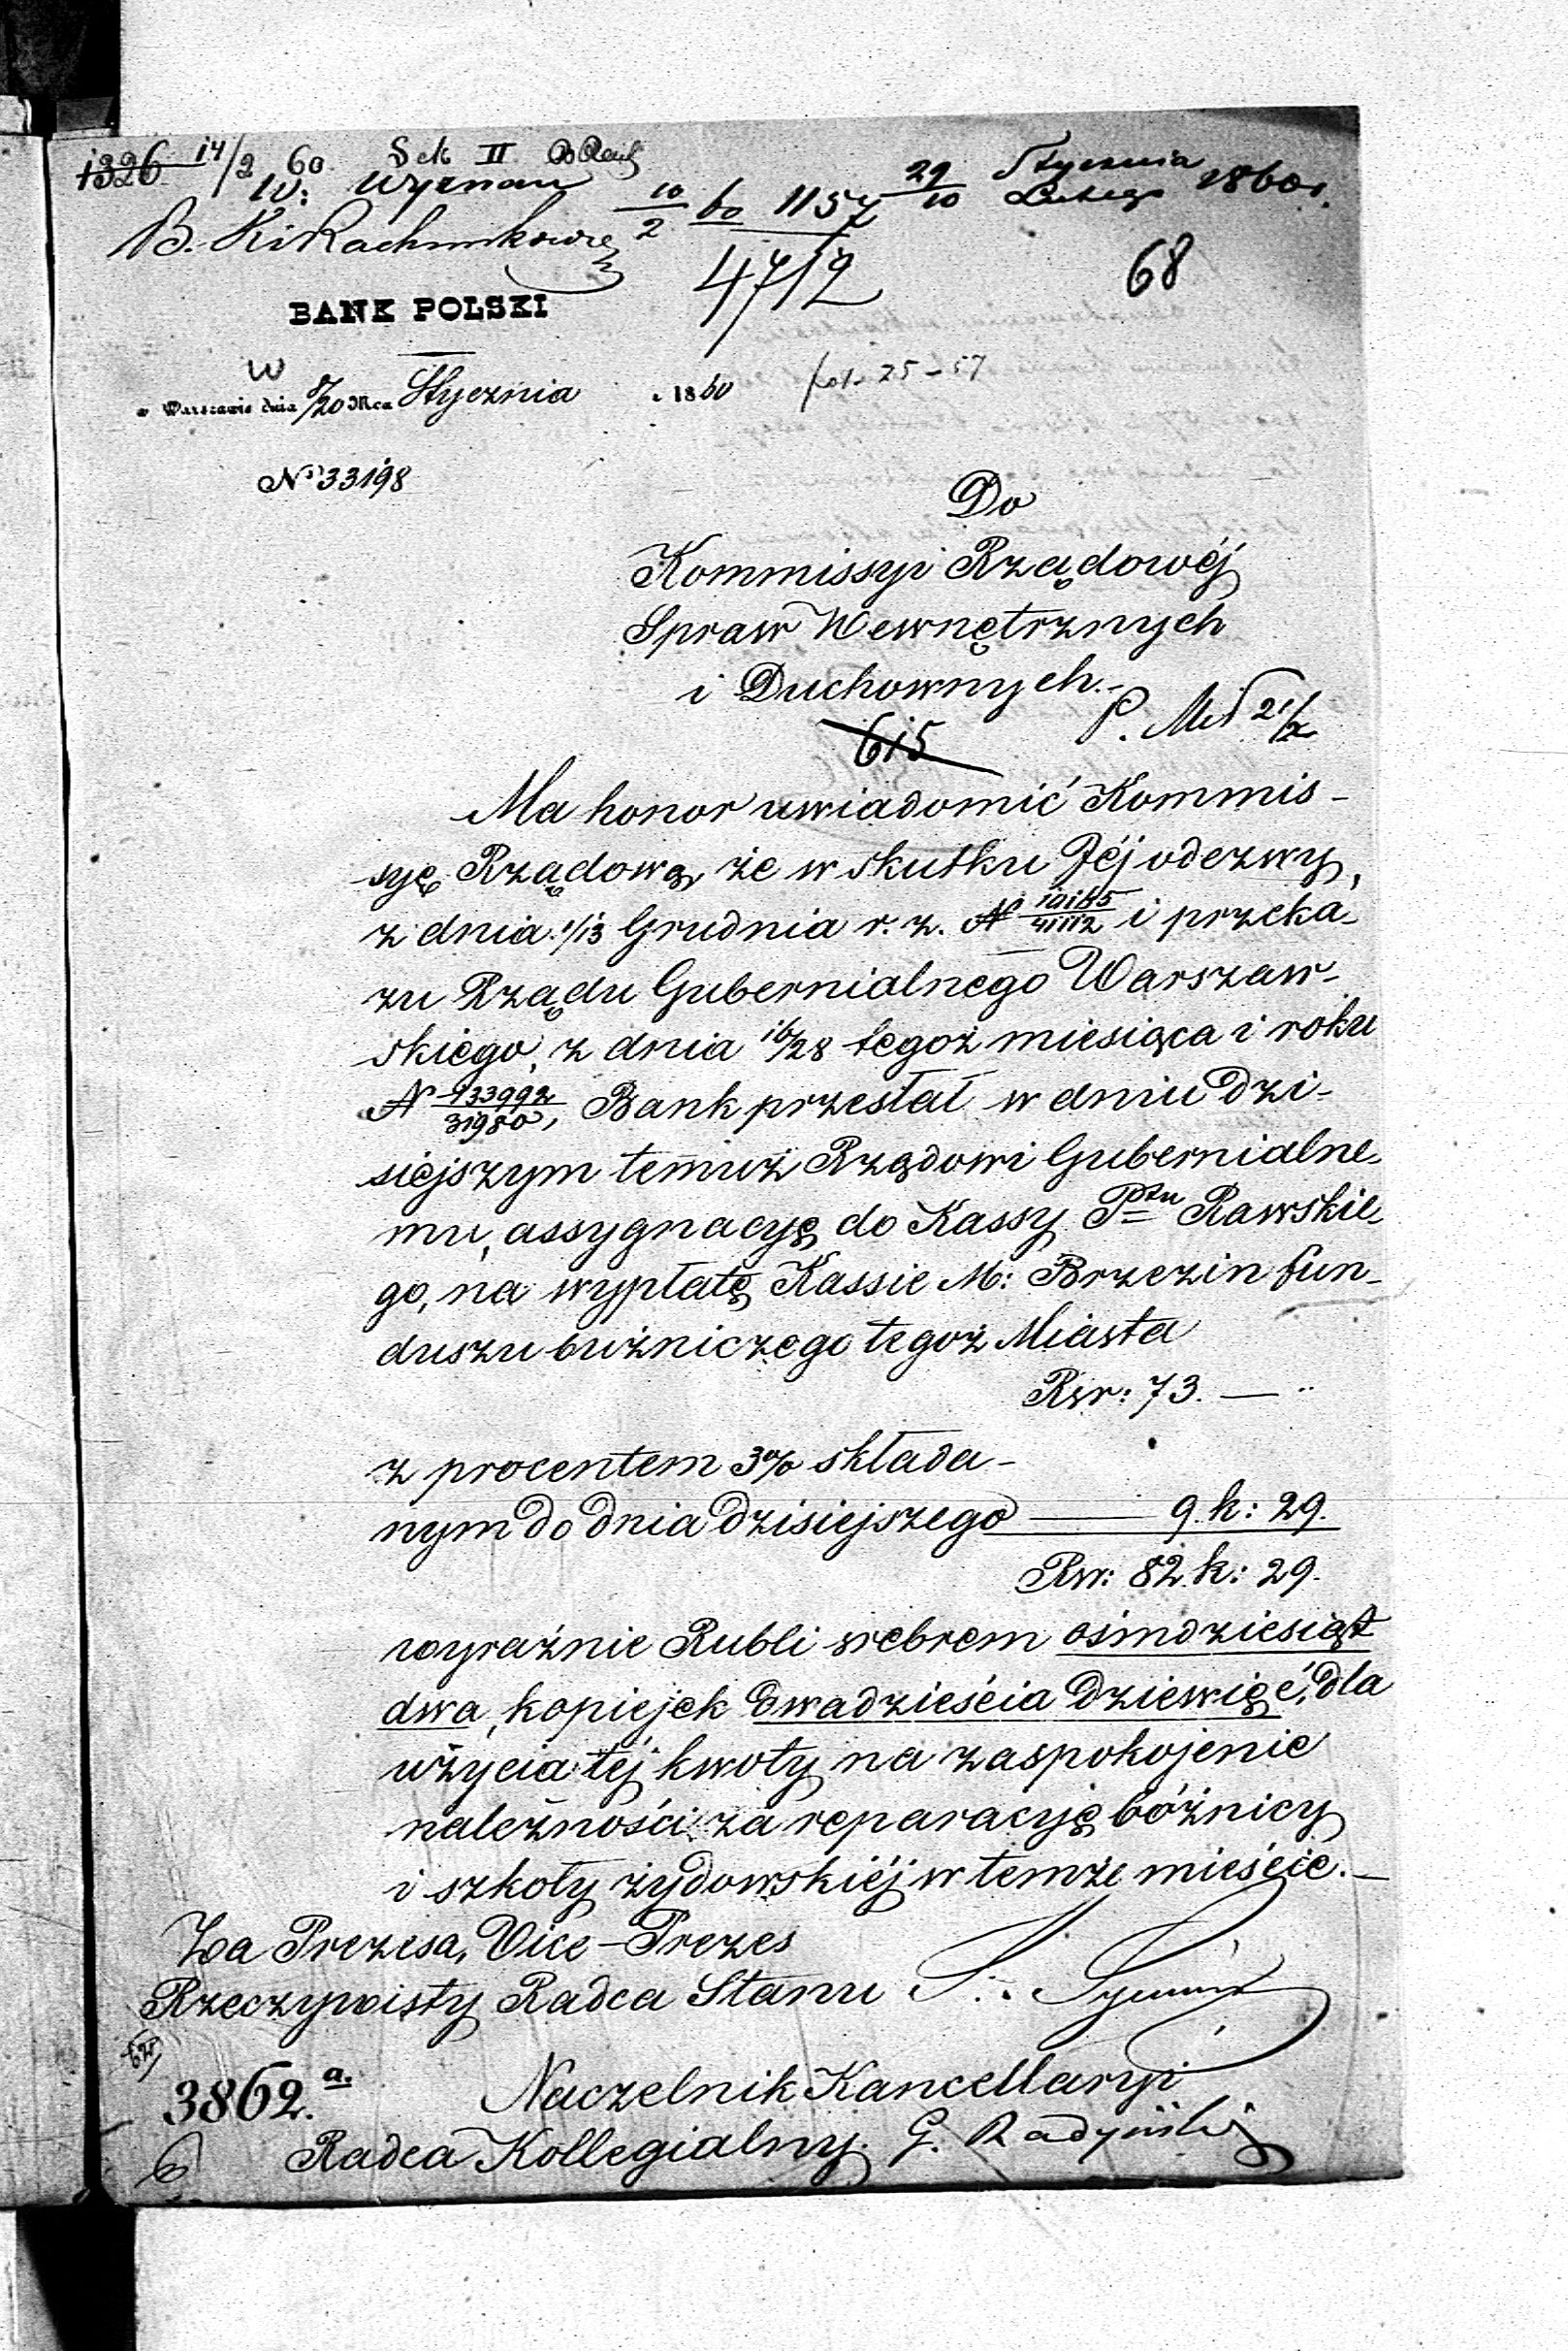 1326 14/2 60 Sek II
W: Wyznań 10/2 60 1157 29/10 Stycznia Lutego 1860 r.
B. Ki Rachunkowe
4712
68
BANK POLSKI
w
w Warszawie dnia 8/20 Mca Stycznia 1860
fol. 25-57
No 33198
Do
Kommissyi Rządowéj
Spraw Wewnętrznych
i Duchownych.-
615
Ma honor uwiadomić Kommis-
syę Rządową, że w skutku Jéj odezwy,
z dnia 1/13 Grudnia r. z. N i przeka-
zu Rządu Gubernialnego Warszaw-
skiego, z dnia 16/28 tegoż miesiąca i roku
N 133992/31980, Bank przesłał w dniu dzi-
siejszym temuż Rządowi Gubernialne-
mu, assygnacyę do Kassy Ptu Rawskie-
go, na wypłatę Kassie M: Brzezin fun-
duszu bużniczego tegoż Miasta
Rsr: 73. —
z procentem 3% składa-
nym do dnia dzisiejszego — 9. k: 29.
Rsr: 82. k: 29.
wyraźnie Rubli srebrem ośmdziesiąt
dwa, kopiejek dwadzieścia dziewięć, dla
użycia téj kwoty na zaspokojenie
należności za reparacyję bóżnicy
i szkoły żydowskiéj w temże mieście.—
Za Prezesa, Vice-Prezes
Rzeczywisty Radca Stanu
3862.a.
Naczelnik Kancellaryi
Radca Kollegialny. G. Radyński